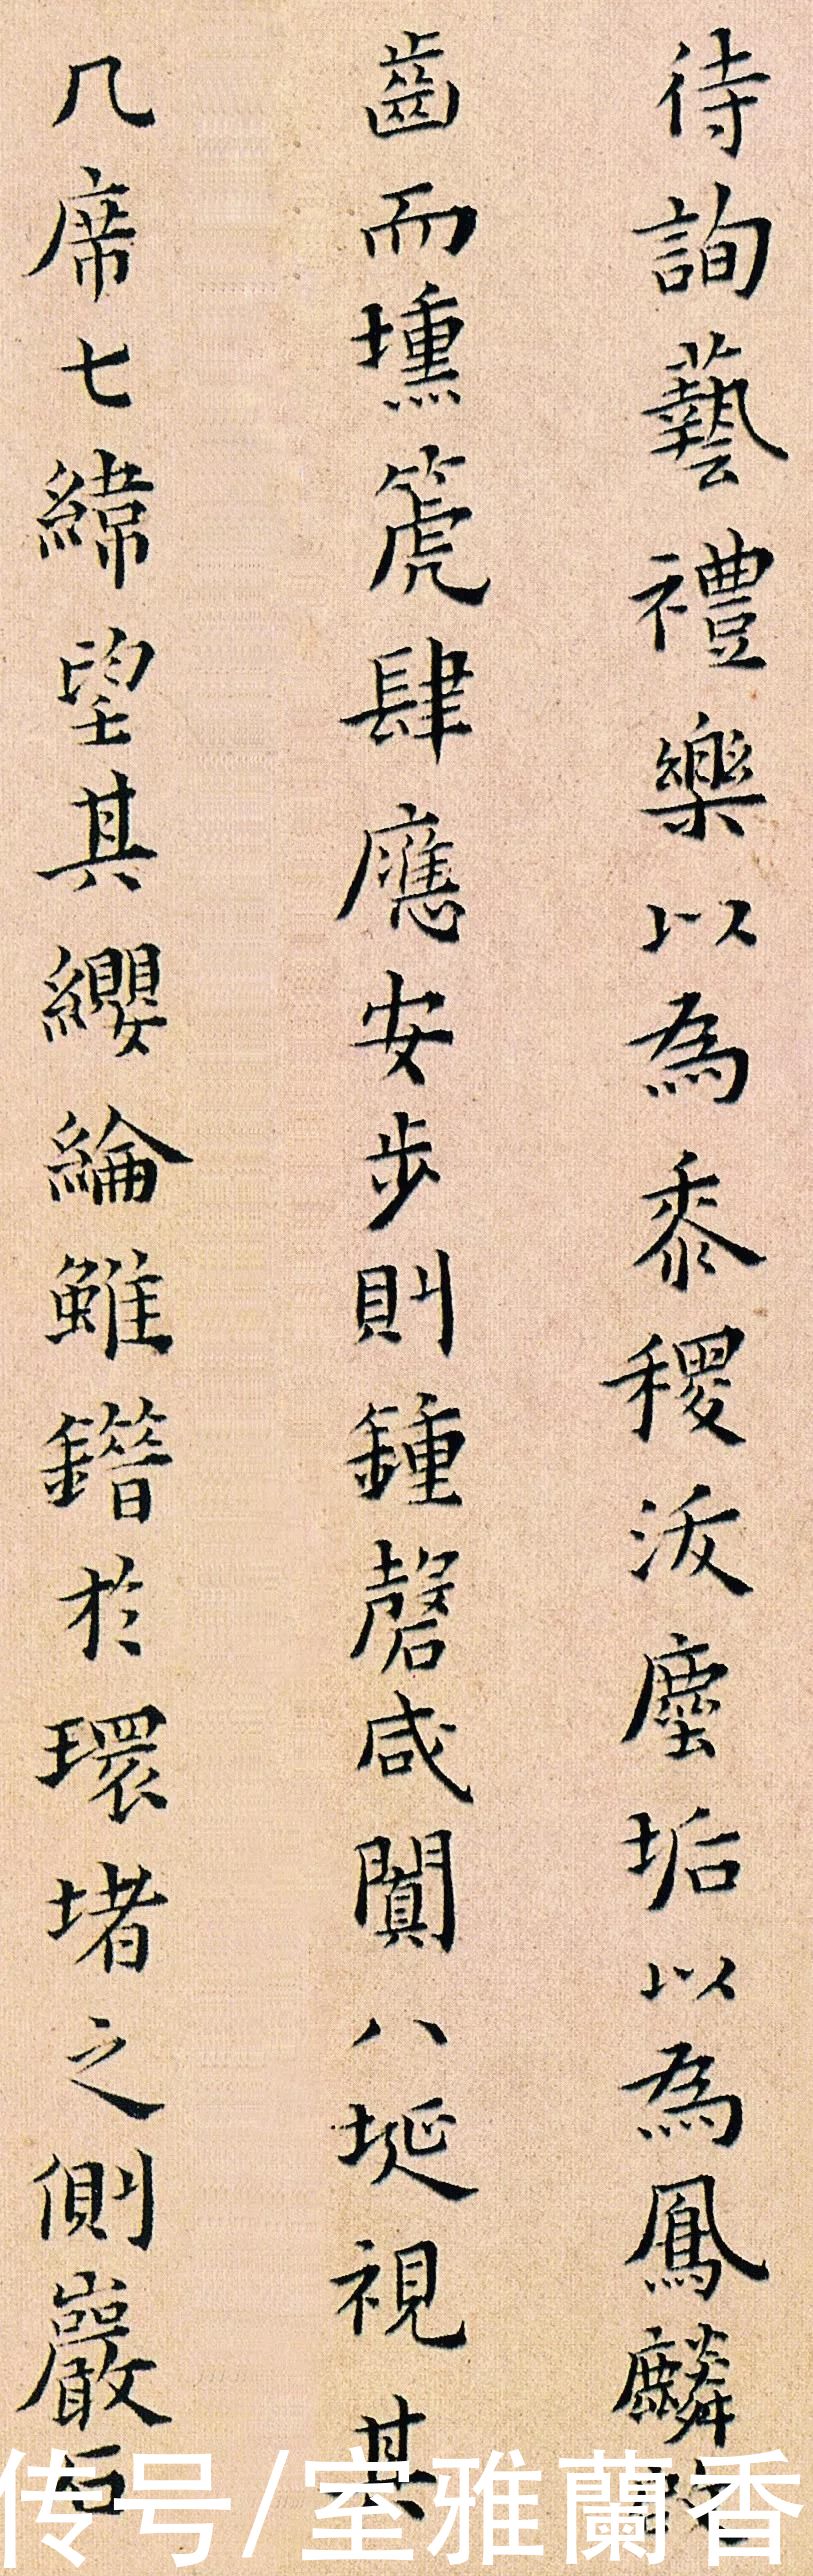 待詢藝禮樂以為黍稷泼塵垢以為鳳麟
齒而壎篪肆應安步則鍾磬咸闐八埏視其
几席七緯望其纓綸雖鐕於環堵之側巖石
传号/室雅蘭香